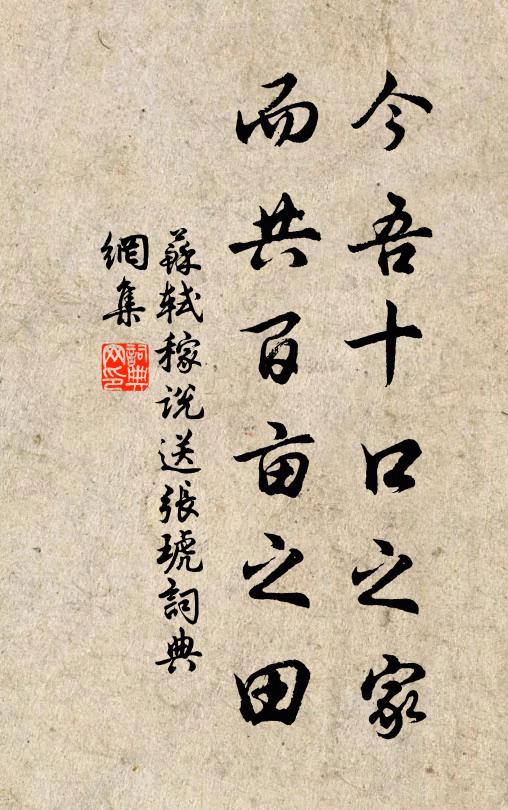 今吾十口之家
而共百亩之田
蘇軾稼說送張琥詞典
網集
詞典网印